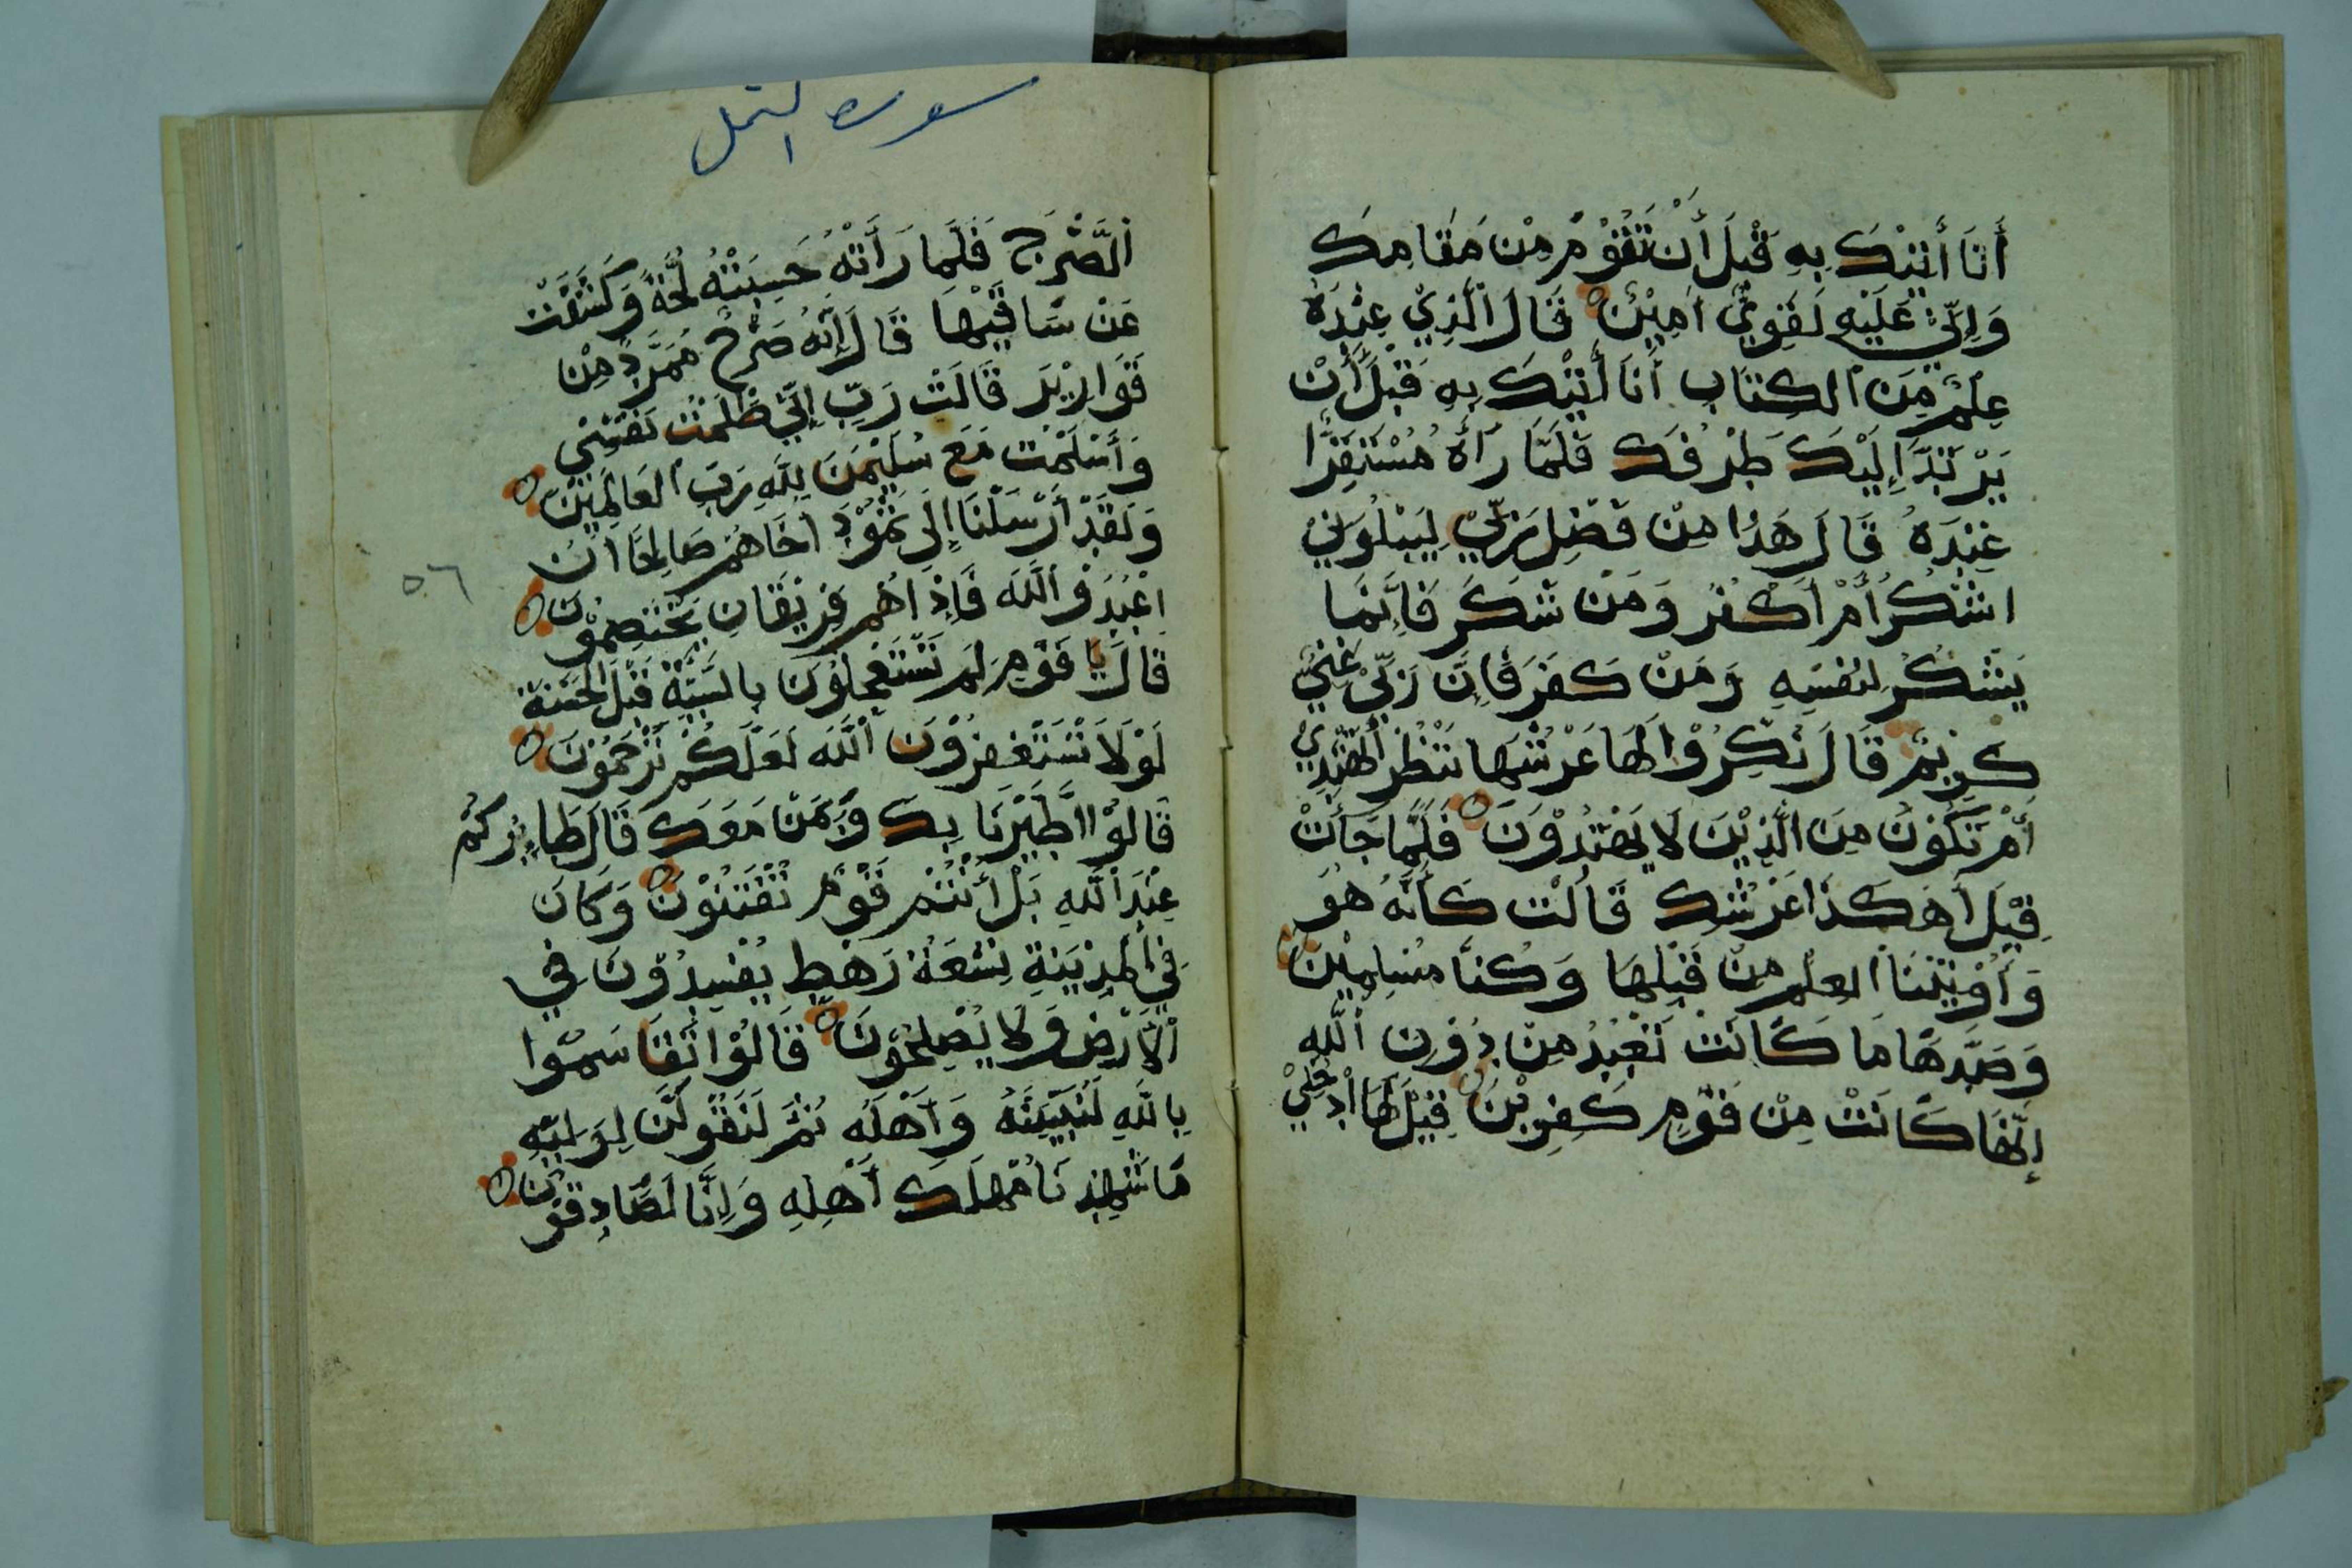 أَنَا أَتِيْكَ بِهِ قَبْلَ أَنْ تَقُوْمَ مِنْ مَقَامِكَ
وَإِنِّي عَلَيْهِ لَقَوِيٌّ أَمِيْنٌ قَالَ الَّذِيْ عِنْدَهُ
عِلْمٌ مِنَ الْكِتَابِ أَنَا أَتِيْكَ بِهِ قَبْلَ أَنْ
يَرْتَدَّ إِلَيْكَ طَرْفُكَ فَلَمَّا رَأَهُ مُسْتَقِرًّا
عِنْدَهُ قَالَ هَذَا مِنْ فَضْلِ رَبِّيْ لِيَبْلُوَنِيْ
اشْكُرُ أَمْ أَكْفُرُ وَمَنْ شَكَرَ فَإِنَّمَا
يَشْكُرُ لِنَفْسِهِ وَمَنْ كَفَرَ فَإِنَّ رَبِّيْ غَنِيٌّ
كَرِيْمٌ قَالَ نَكِّرُوْا لَهَا عَرْشَهَا نَنْظُرْ أَتَهْتَدِيْ
أَمْ تَكُوْنُ مِنَ الَّذِيْنَ لَا يَهْتَدُوْنَ فَلَمَّا جَأَتْ
قِيْلَ أَهَكَذَا عَرْشُكِ قَالَتْ كَأَنَّهُ هُوَ
وَأُوْتِيْنَا الْعِلْمَ مِنْ قَبْلِهَا وَكُنَّا مُسْلِمِيْنَ
وَصَدَّهَا مَا كَانَتْ تَعْبُدُ مِنْ دُوْنِ اللَّهِ
إِنَّهَا كَانَتْ مِنْ قَوْمٍ كَفِرِيْنَ قِيْلَ لَهَا ادْخُلِيْ
سوره النمل
الصَّرْحَ فَلَمَّا رَأَتْهُ حَسِبَتْهُ لُجَّةً وَكَشَفَتْ
عَنْ سَاقَيْهَا قَالَ إِنَّهُ صَرْحٌ مُمَرَّدٌ مِنْ
قَوَارِيْرَ قَالَتْ رَبِّ إِنِّيْ ظَلَمْتُ نَفْسِيْ
وَأَسْلَمْتُ مَعَ سُلَيْمَنَ لِلَّهِ رَبِّ الْعَالَمِيْنَ
وَلَقَدْ أَرْسَلْنَا إِلَى ثَمُوْدَ أَخَاهُمْ صَالِحًا أَنْ
اعْبُدُوْا اللَّهَ فَإِذَا هُمْ فَرِيْقَانِ يَخْتَصِمُوْنَ
قَالَ يَا قَوْمِ لِمَ تَسْتَعْجِلُوْنَ بِالسَّيِّئَةِ قَبْلَ الْحَسَنَةِ
لَوْلَا تَسْتَغْفِرُوْنَ اللَّهَ لَعَلَّكُمْ تُرْحَمُوْنَ
قَالُوْا اطَّيَّرْنَا بِكَ وَبِمَنْ مَعَكَ قَالَ طَائِرُكُمْ
عِنْدَ اللَّهِ بَلْ أَنْتُمْ قَوْمٌ تُفْتَنُوْنَ وَكَانَ
فِي الْمَدِيْنَةِ تِسْعَةُ رَهْطٍ يُفْسِدُوْنَ فِي
الْأَرْضِ وَلَا يُصْلِحُوْنَ قَالُوْا تَقَاسَمُوْا
بِاللَّهِ لَنُبَيِّتَنَّهُ وَأَهْلَهُ ثُمَّ لَنَقُوْلَنَّ لِوَلِيِّهِ
مَا شَهِدْنَا مَهْلَكَ أَهْلِهِ وَإِنَّا لَصَادِقُوْنَ
٥٦